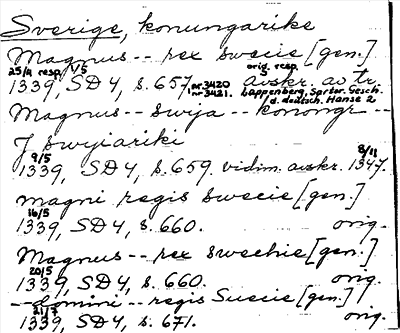 Sverige, konungarike
Magnus -- rex swecie [gen.]
25/4 resp. 1/5 orig. resp.
1339, SD 4, s. 657. nr 3420 avskr. av tr.
nr 3421. Lappenberg, Sartor. Gesch.
d. deutsch. Hanse 2
Magnus -- swya -- konongr --
J swyiariki
9/5 8/11
1339, SD 4, s. 659. vidim. avskr. 1347.
magni regis swecie [gen.]
16/5
1339, SD 4, s. 660. orig.
Magnus -- rex swechie [gen.]
20/5
1339, SD 4, s. 660. orig.
-- domini -- regis Suecie [gen.]
21/7
1339, SD 4, s. 671. orig.